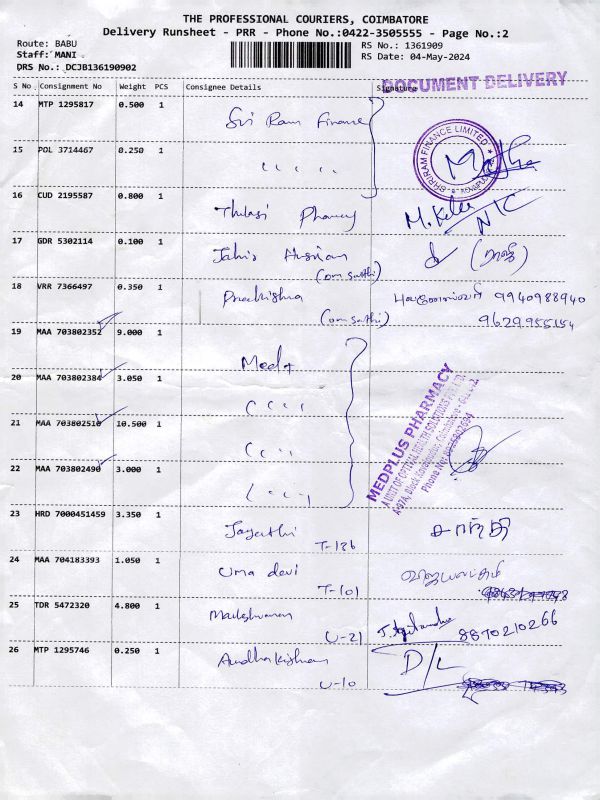 THE PROFESSIONAL COURIERS, COIMBATORE
Delivery Runsheet - PRR - Phone No.:0422-3505555 - Page No.:2
Route: BABU
Staff: MANI
DRS No.: DCJB136190902
RS No.: 1361909
RS Date: 04-May-2024
DOCUMENT DELIVERY
S No Consignment No Weight PCS Consignee Details Signature
14 MTP 1295817 0.500 1 Sri Ram Finance
SHRIRAM FINANCE LIMITED
15 POL 3714467 0.250 1 " " " "
16 CUD 2195587 0.800 1 Thulasi Pharmcy
17 GDR 5302114 0.100 1 Jahir Hussian
(om sakthi)
18 VRR 7366497 0.350 1 9940988940
(om sakthi) 9629955154
19 MAA 703802352 9.000 1 Med+
20 MAA 703802384 3.050 1 " " " "
21 MAA 703802510 10.500 1 " " " "
22 MAA 703802490 3.000 1 " " " "
MEDPLUS PHARMACY
A UNIT OF OPTIVAL HEALTH SOLUTIONS PVT LTD
23 HRD 7000451459 3.350 1 Jayanthi சாந்தி
T-126
24 MAA 704183393 1.050 1 Uma devi
T-101
25 TDR 5472320 4.800 1 Maheshwaran
U-21 8870210266
26 MTP 1295746 0.250 1 D/L
U-10